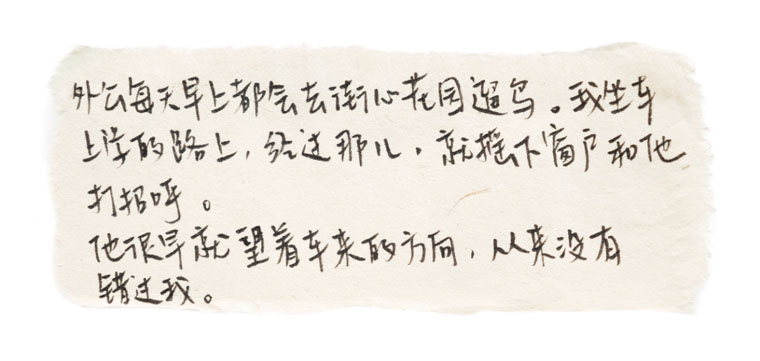 外公每天早上都会去街心花园遛鸟。我坐车
上学的路上，经过那儿，就摇下窗户和他
打招呼。
他很早就望着车来的方向，从来没有
错过我。